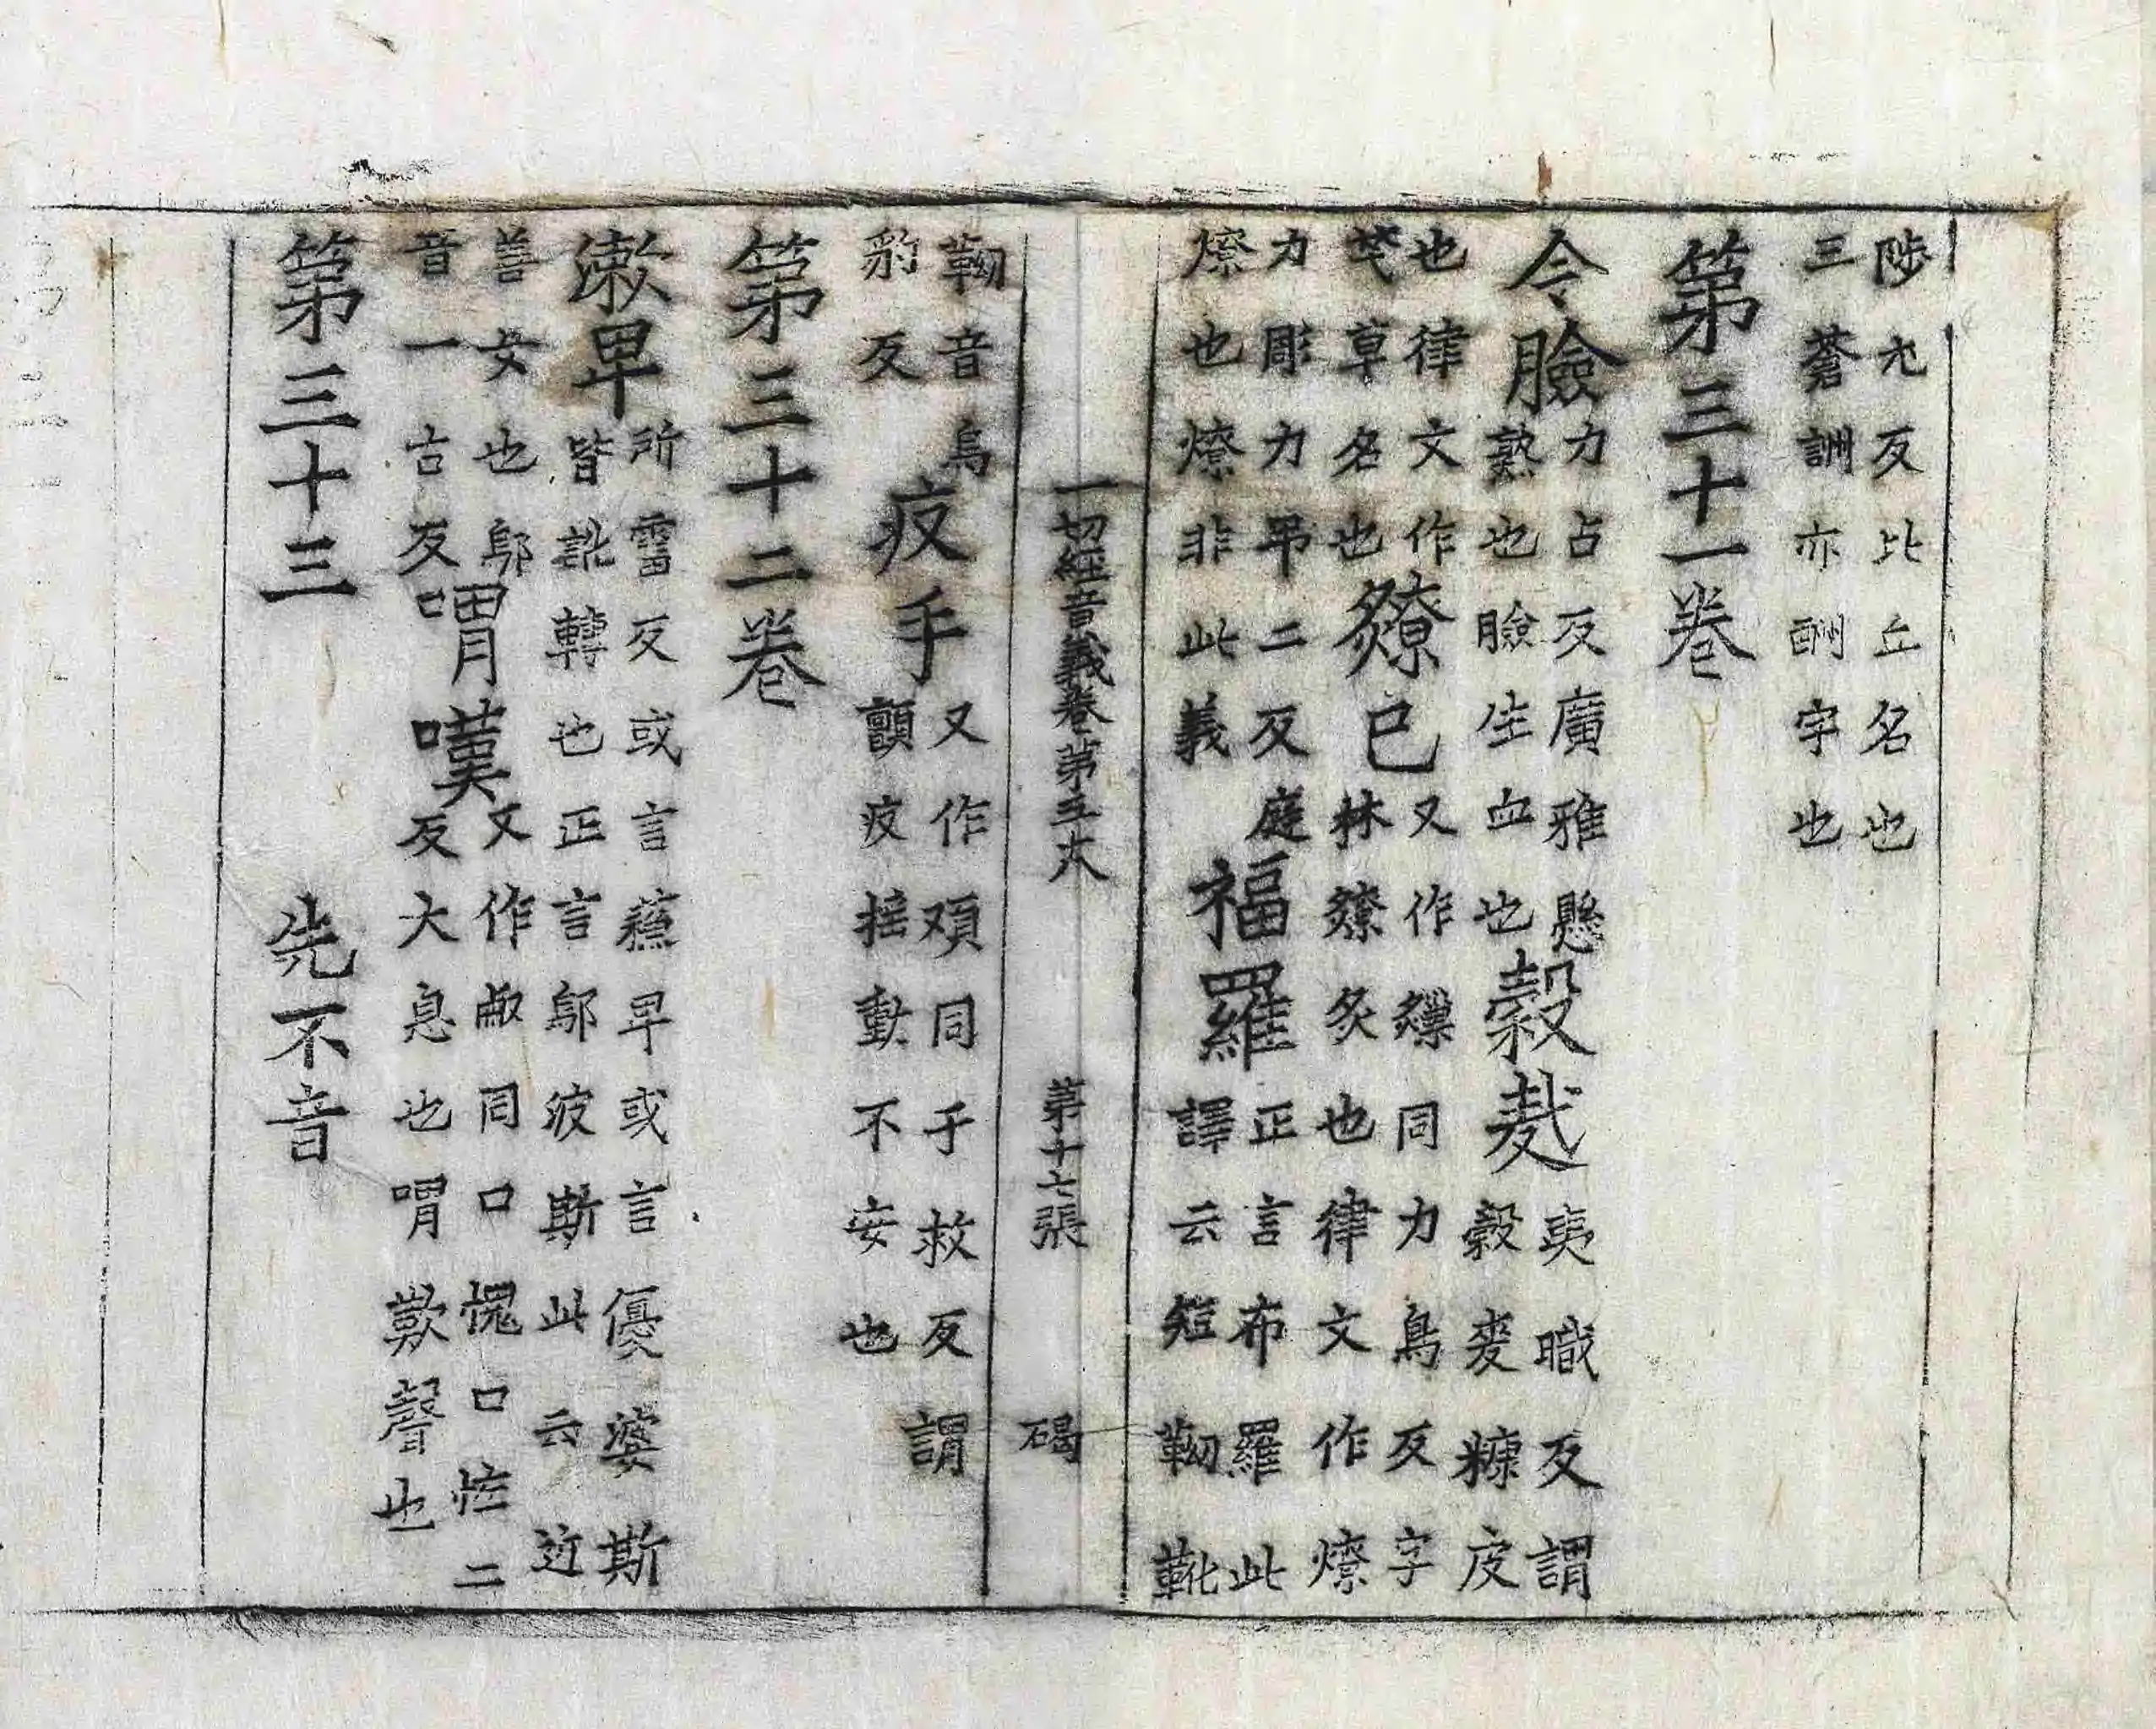 陟尤反比丘名也
三蒼詶亦酬字也
第三十一卷
令臉
力占反廣雅臉
熟也臉生血也
穀麩
夷職反謂
穀麥糠皮
也律文作
芅草名也
爒已
又作爒同力鳥反字
林爒炙也律文作燎
力彫力吊二反庭
燎也燎非此義
福羅
正言布羅此
譯云短靿靴
靿音烏
豹反
疫手
又作頄同于救反謂
顫疫搖動不安也
一切經音義卷第五大
第十七張
碣
第三十二卷
漱早
所霤反或言蘓早或言優婆斯
皆訛轉也正言鄔波斯此云近
善女也鄔
音一古反
喟嘆
又作㕟同口愧口恠二
反大息也喟歎聲也
第三十三 先不音